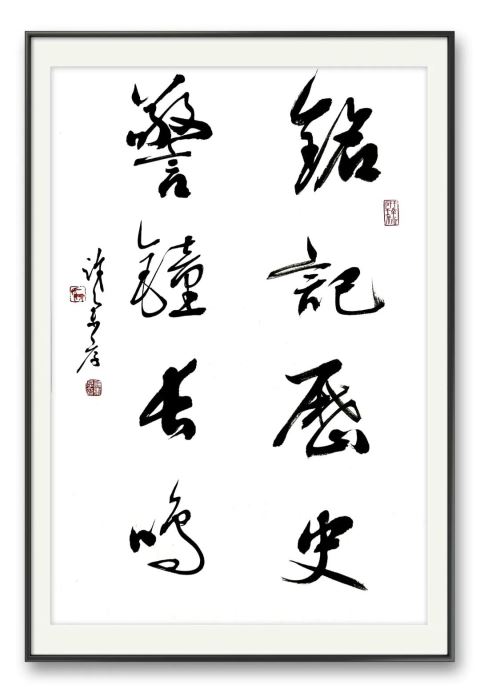 銘記歷史
警鐘長鳴